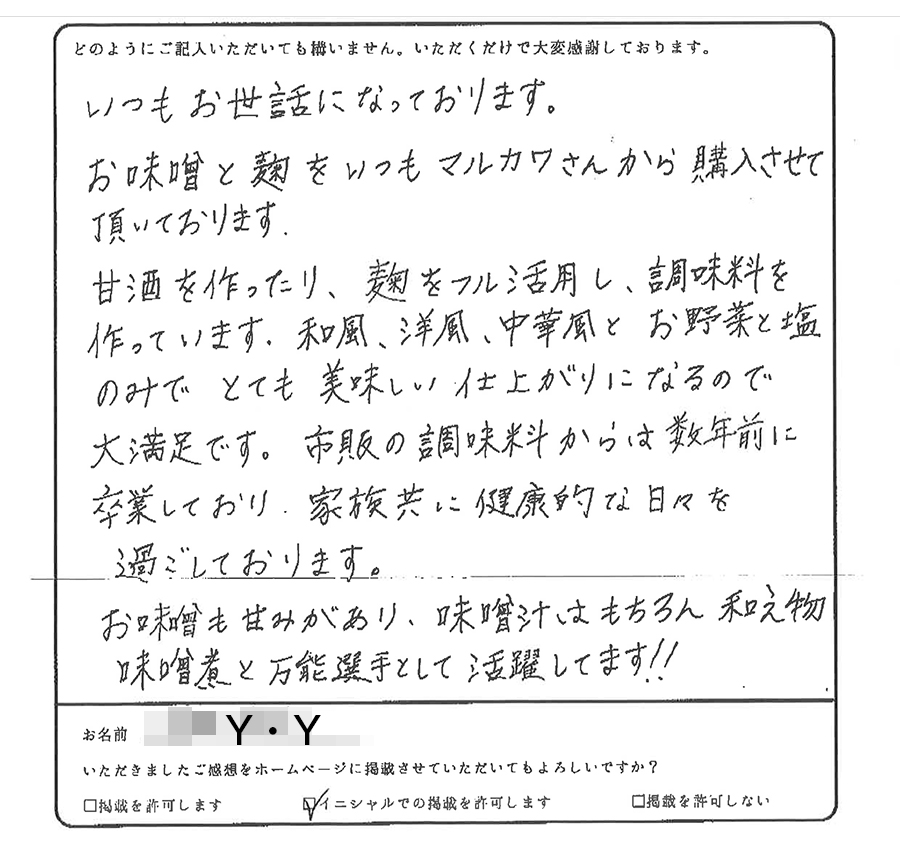 どのようにご記入いただいても構いません。いただくだけで大変感謝しております。
いつもお世話になっております。
お味噌と麹をいつもマルカワさんから購入させて
頂いております.
甘酒を作ったり、麹をフル活用し、調味料を
作っています. 和風、洋風、中華風と お野菜と塩
のみで とても 美味しい 仕上がりになるので
大満足です。市販の調味料からは数年前に
卒業しており. 家族共に健康的な日々を
過ごしております。
お味噌も甘みがあり、味噌汁はもちろん 和え物
味噌煮と万能選手として活躍してます!!
お名前 Y・Y
いただきましたご感想をホームページに掲載させていただいてもよろしいですか?
□掲載を許可します ☑イニシャルでの掲載を許可します □掲載を許可しない